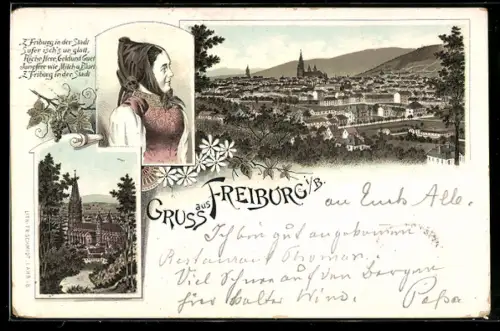 Z' Friburg in der Stadt
Sufer isch's un glatt,
Richi Here, Geld und Guet
Jumpfere wie Milch u. Bluet,
Z' Friburg in der Stadt
GRUSS aus FREIBURG i/B.
an Euch Alle.
Ich bin gut angekommen
Restaurant Thoman.
Viel Schnee auf den Bergen
hier kalter Wind. Papa